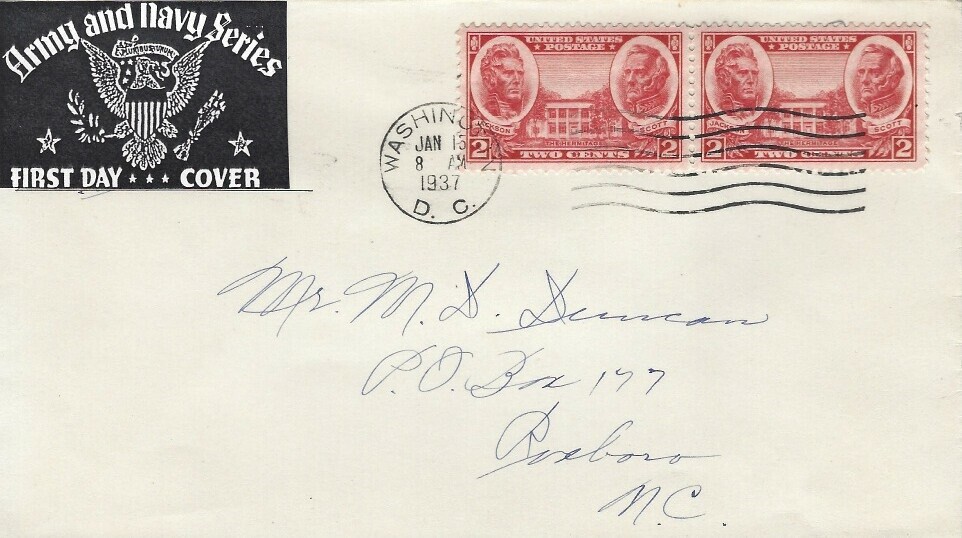 Army and Navy Series
E PLURIBUS UNUM
FIRST DAY ★ ★ ★ COVER
UNITED STATES
★ POSTAGE ★
JACKSON
SCOTT
THE HERMITAGE
2 TWO CENTS 2
UNITED STATES
★ POSTAGE ★
JACKSON
SCOTT
THE HERMITAGE
2 TWO CENTS 2
WASHINGTON
JAN 15
8 AM
1937
D. C.
Mr. M. D. Duncan
P.O. Box 177
Roxboro
N.C.